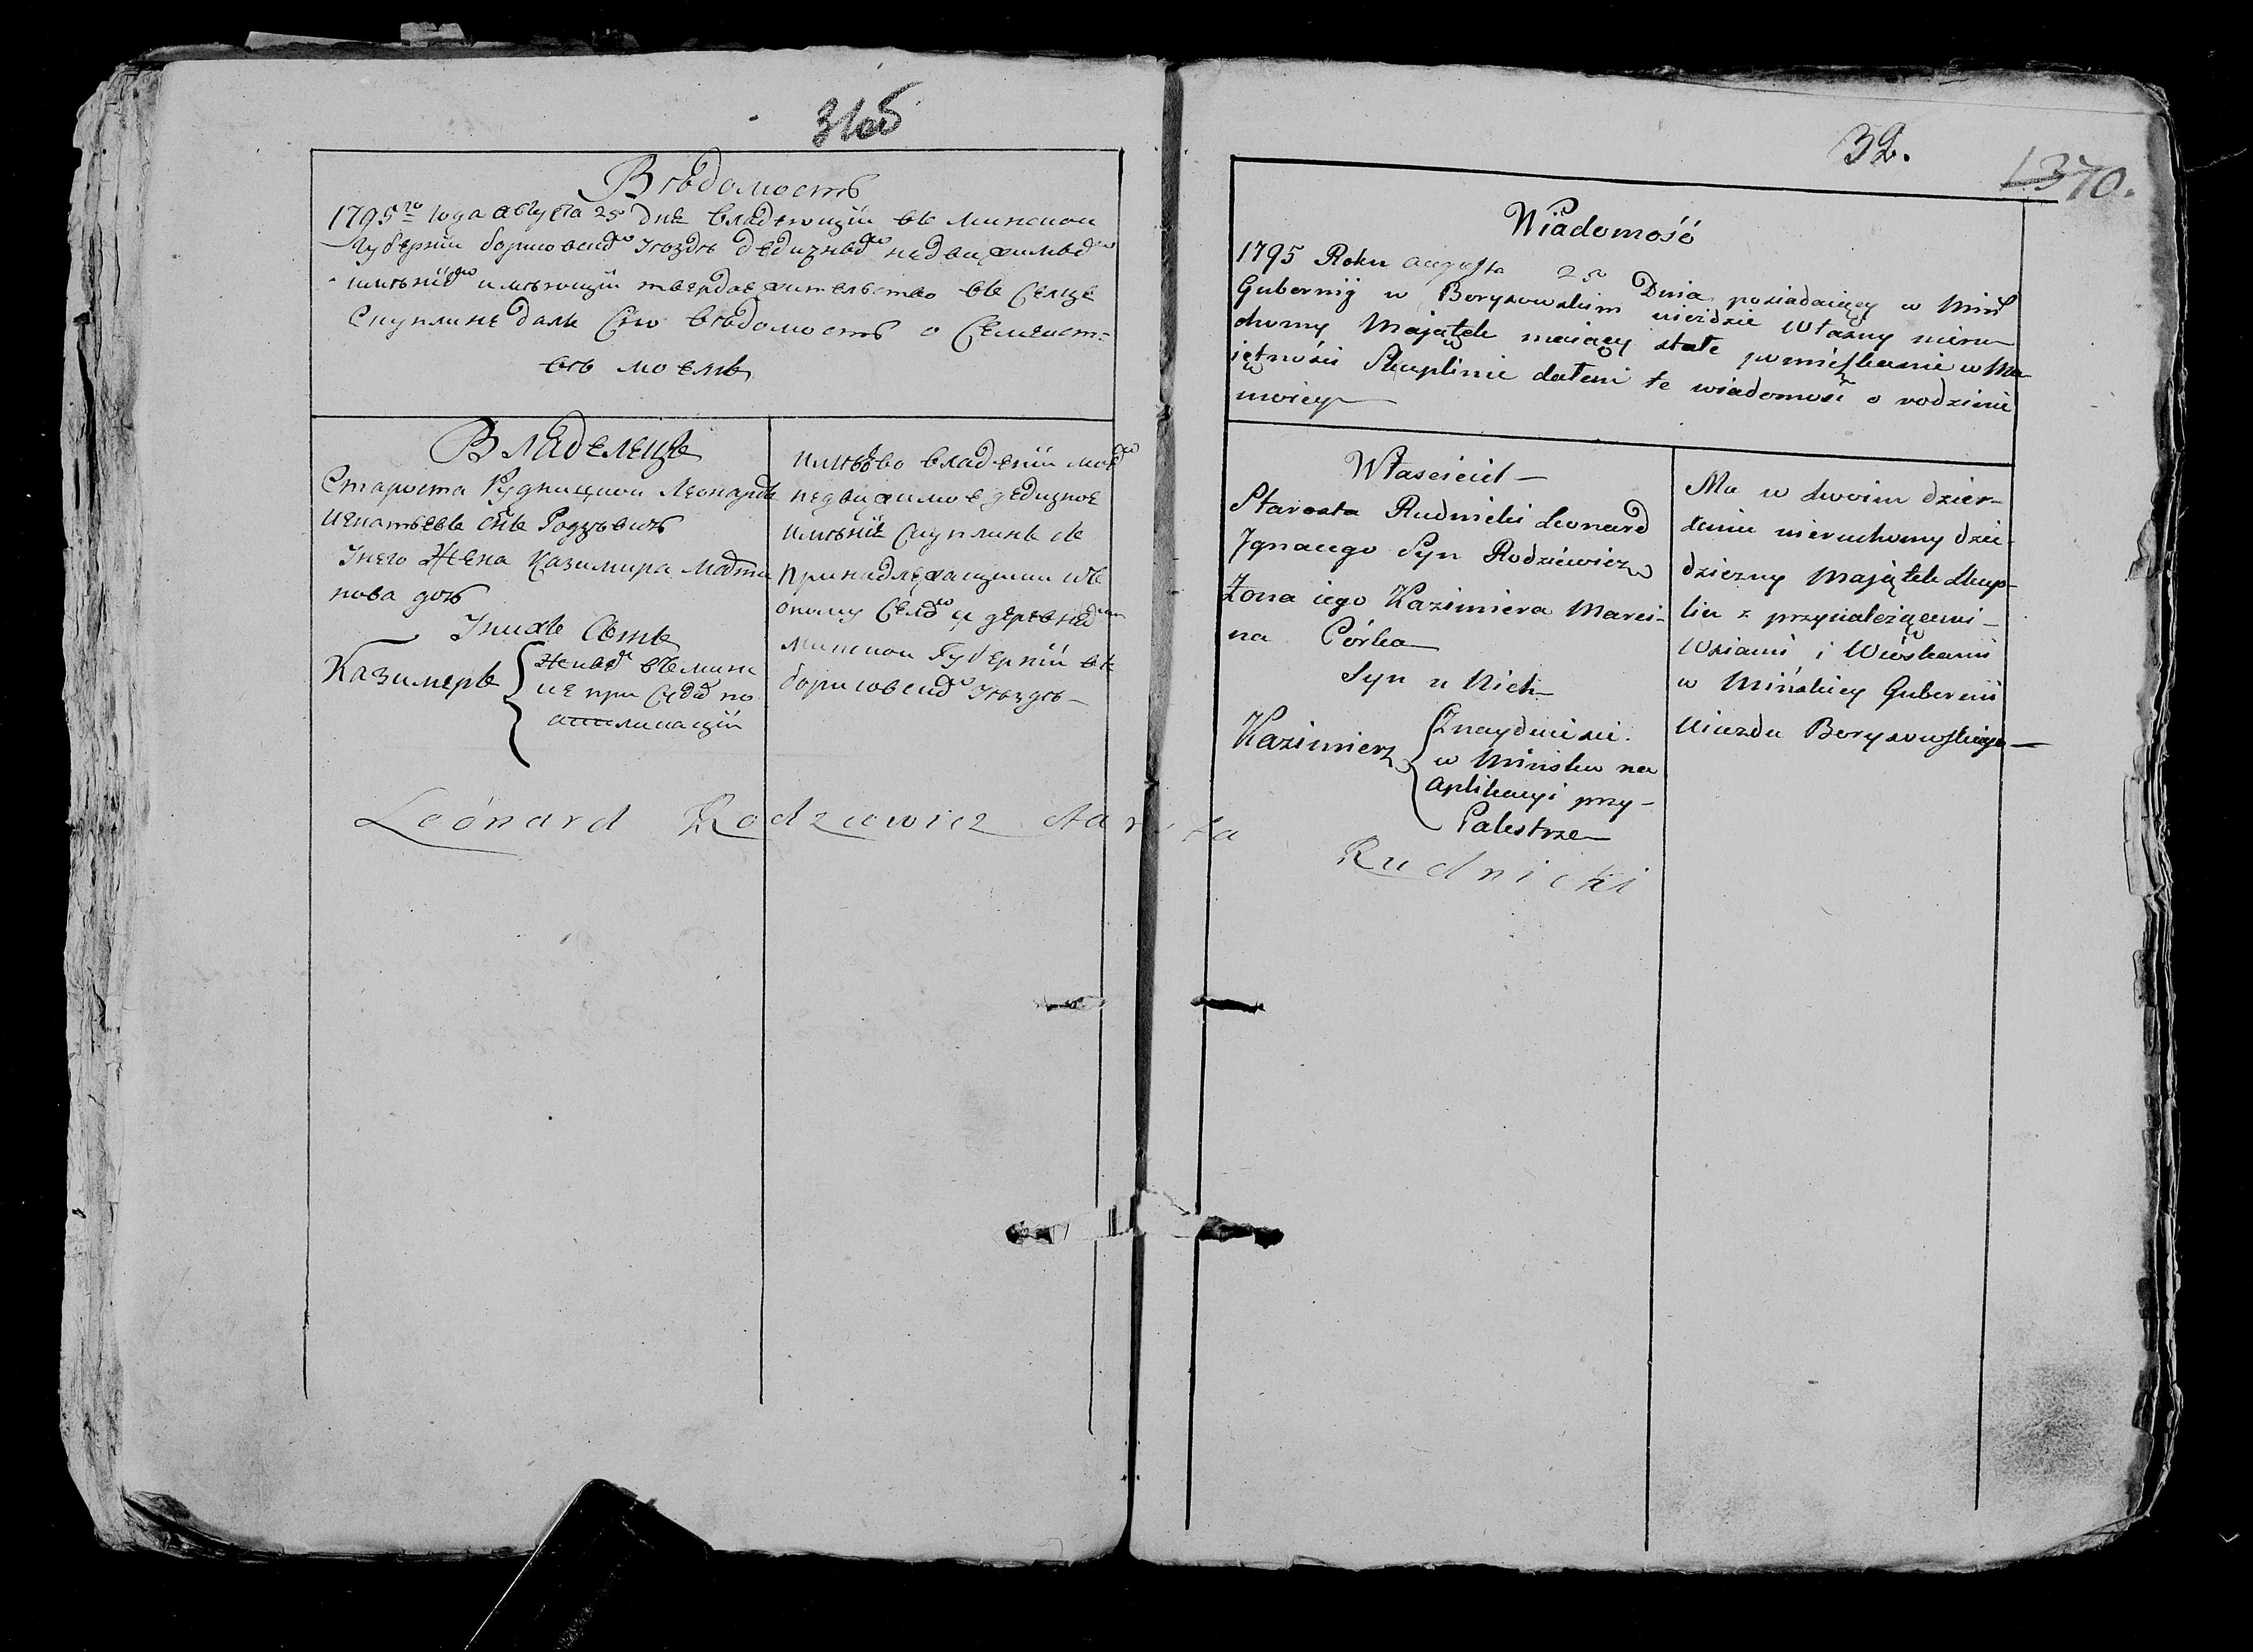 31об
Вѣдомость
1795го года августа 25 дня владеющій въ Минской
Губерніи борисовскомъ уѣздѣ дедизнымъ недвижимымъ
имѣніемъ имѣющій твердое жителство въ селце
Скуплине далъ сію вѣдомость о семейст-
вѣ моемъ
Владелецъ
Староста Рудницкой Леонардъ
Игнатьевъ снъ Родзѣвичь
Унего Жена Казимира Марти
нова дочь
Унихъ снъ
Казимеръ
Живетъ въ Минс
ке при судах по
апликаціи
имѣетъ во владеніи моемъ
недвижимое дедизное
имѣніе Скуплинъ съ
принадлежащими къ
оному селами и деревнями
Минской Губерніи въ
борисовскомъ уѣздѣ
Leónard Rodziewicz Starosta
Rudnicki
32.
1370.
Wiadomość
1795 Roku augusta 25 Dnia posiadaiący w Miń
Gubernij w Borysowskim uieździe Własny nieru-
chomy Majątek maiący stałe pomieszkanie w Ma-
iętności Skuplinie dałem tę wiadomość o rodzinie
moiey
Własciciel
Starosta Rudnicki Leonard
Jgnacego Syn Rodziewicz
Żona iego Kazimiera Marci-
na Córka
Syn u Nich
Kazimierz
Znayduie sie
w Mińsku na
aplikacyi przy
Palestrze
Ma w swoim dzier-
żeniu nieruchomy dzie-
dziczny Majątek Skup-
lin z przynależącemi
Wsiami i Wioskami
w Mińskiey Gubernii
Uiazdu Borysowskiego